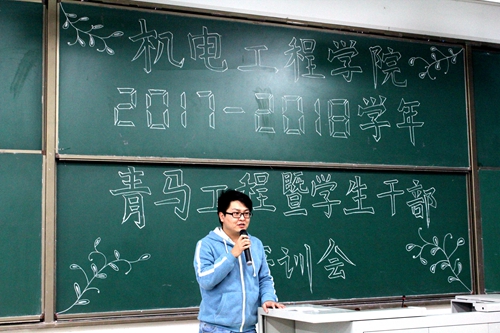 机电工程学院
2017-2018学年
青马工程暨学生干部
训会